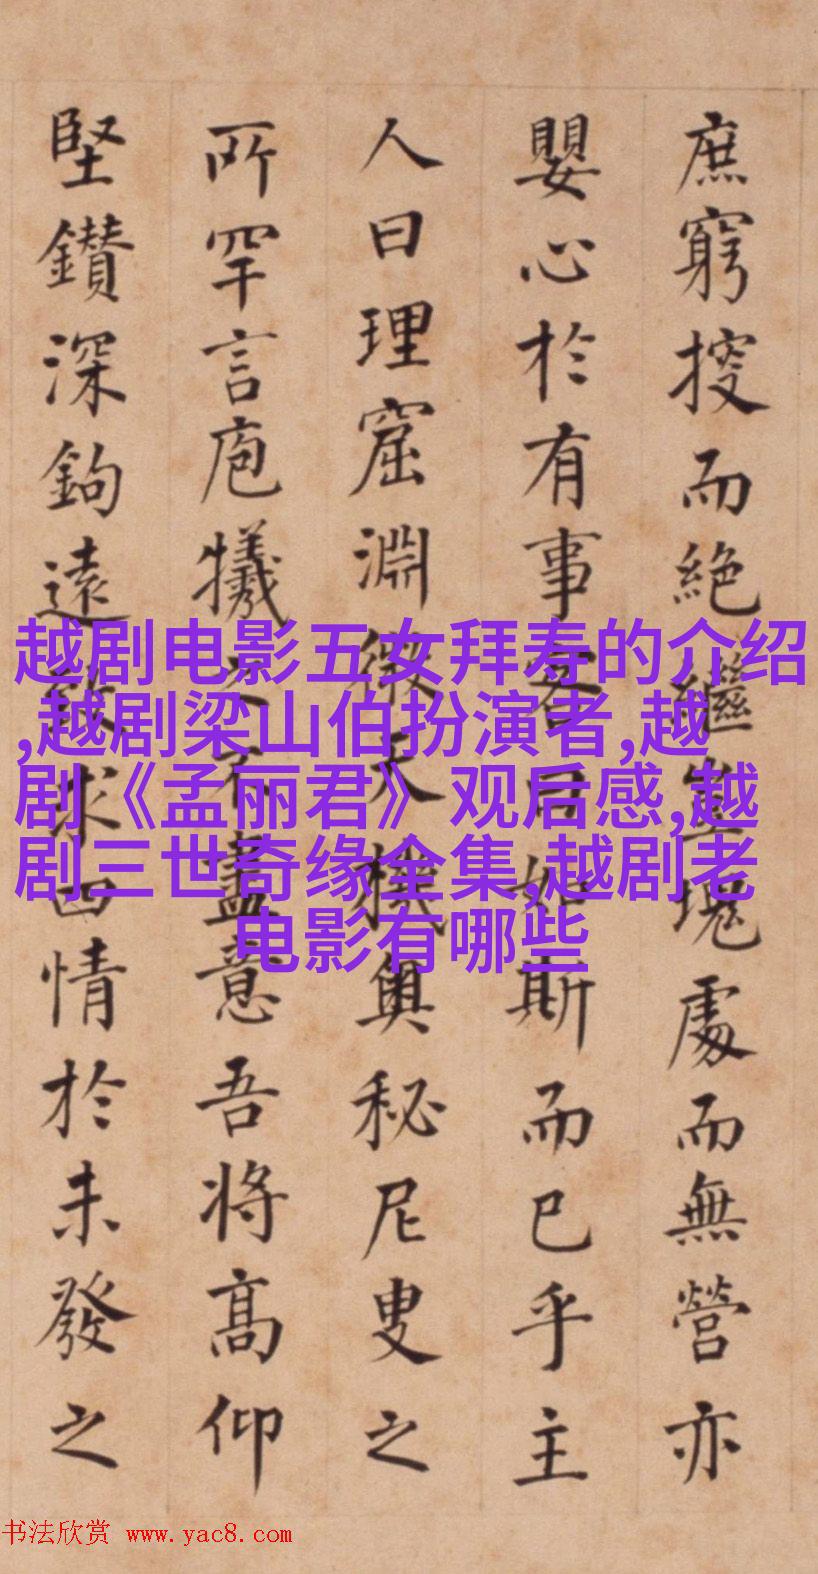 庶窮搜而絶繼塊處而無營亦
嬰心於有事客曰如斯而已乎主
人曰理窟淵微天機奧秘尼叟之
所罕言庖犧之不盡意吾将高仰
堅鑽深鉤遠求四情於未發之
越剧电影五女拜寿的介绍
,越剧梁山伯扮演者,越
剧《孟丽君》观后感,越
剧三世奇缘全集,越剧老
电影有哪些
书法欣赏 www.yac8.com